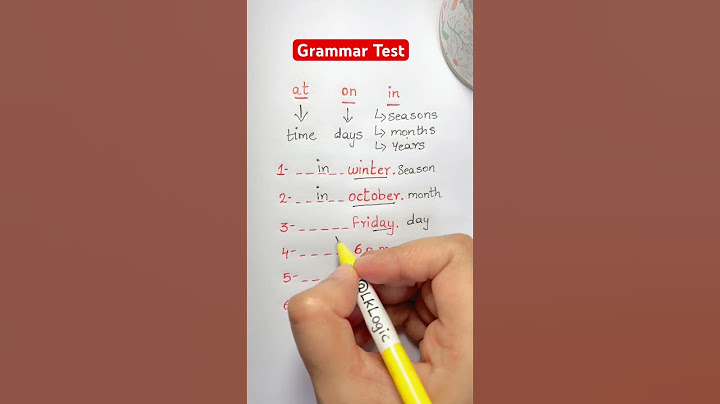 Grammar Test
at on in
↳ seasons
time days ↳ months
↳ Years
1- _ _ in _ _ winter. Season
2- _ _ in _ _ october. month
3- _ _ _ _ _ Friday. day
4- _ _ _ _ 6 p.m
5- _ _
@LkLogic